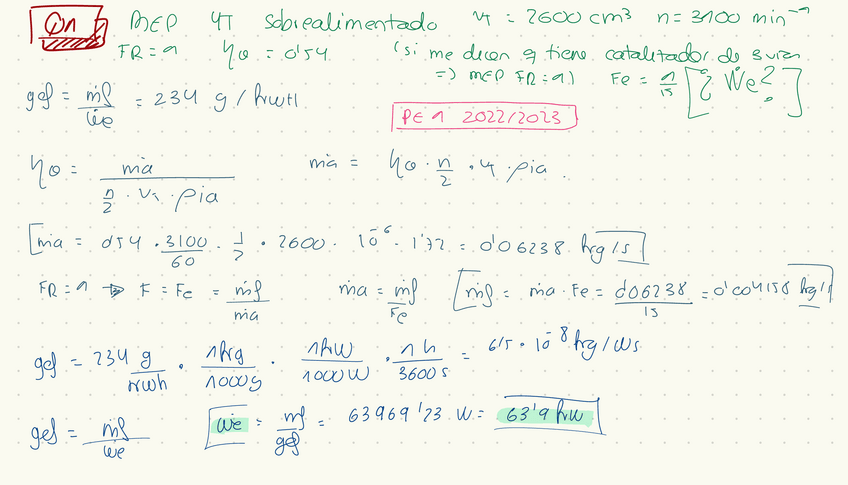 Q1 MEP 4T sobrealimentado VT = 2600 cm³ n = 3100 min⁻¹
FR = 1 ηv = 0'54 (si me dicen q tiene catalizador de 3 vías
=> MEP FR = 1) Fe = 1/15 [¿Ẇe?]
gef = ṁf / Ẇe = 234 g/kWH
PE 1 2022/2023
ηv = ṁa / (n/2 · VT · ρia) ṁa = ηv · n/2 · VT · ρia.
[ṁa = 0'54 · 3100/60 · 1/2 · 2600 · 10⁻⁶ · 1'72 = 0'06238 kg/s]
FR = 1 → F = Fe = ṁf / ṁa ṁa = ṁf / Fe [ṁf = ṁa · Fe = 0'06238 / 15 = 0'004158 kg/s]
gef = 234 g/kWh · 1kg/1000g · 1kW/1000W · 1h/3600s = 6'5 · 10⁻⁸ kg/Ws
gef = ṁf / Ẇe Ẇe = ṁf / gef = 63969'23 W = 63'9 kW